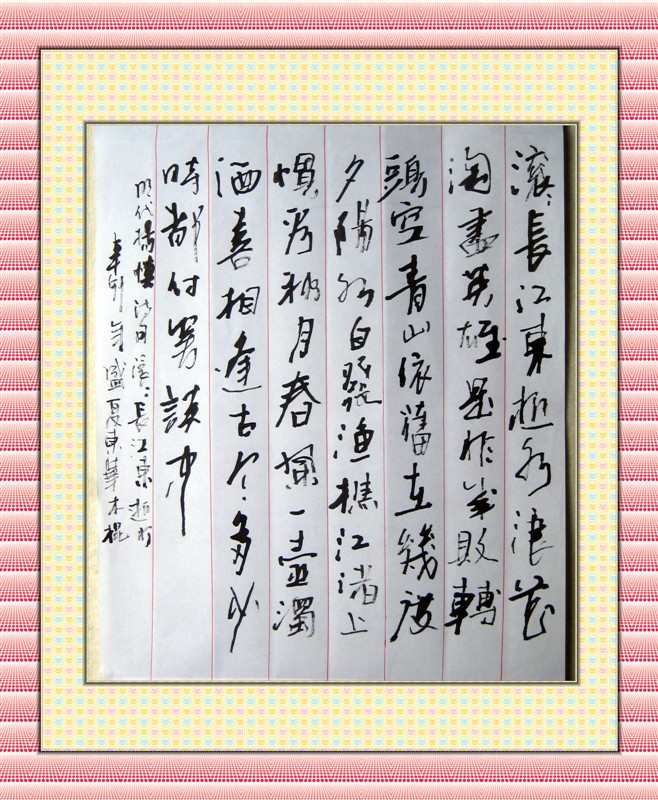 滾〻長江東逝水浪花
淘盡英雄是非成敗轉
頭空青山依舊在幾度
夕陽紅白髮漁樵江渚上
慣看秋月春風一壺濁
酒喜相逢古今多少
時都付笑談中
明代楊慎詞滾〻長江東逝水
辛卯年盛夏東華木棍